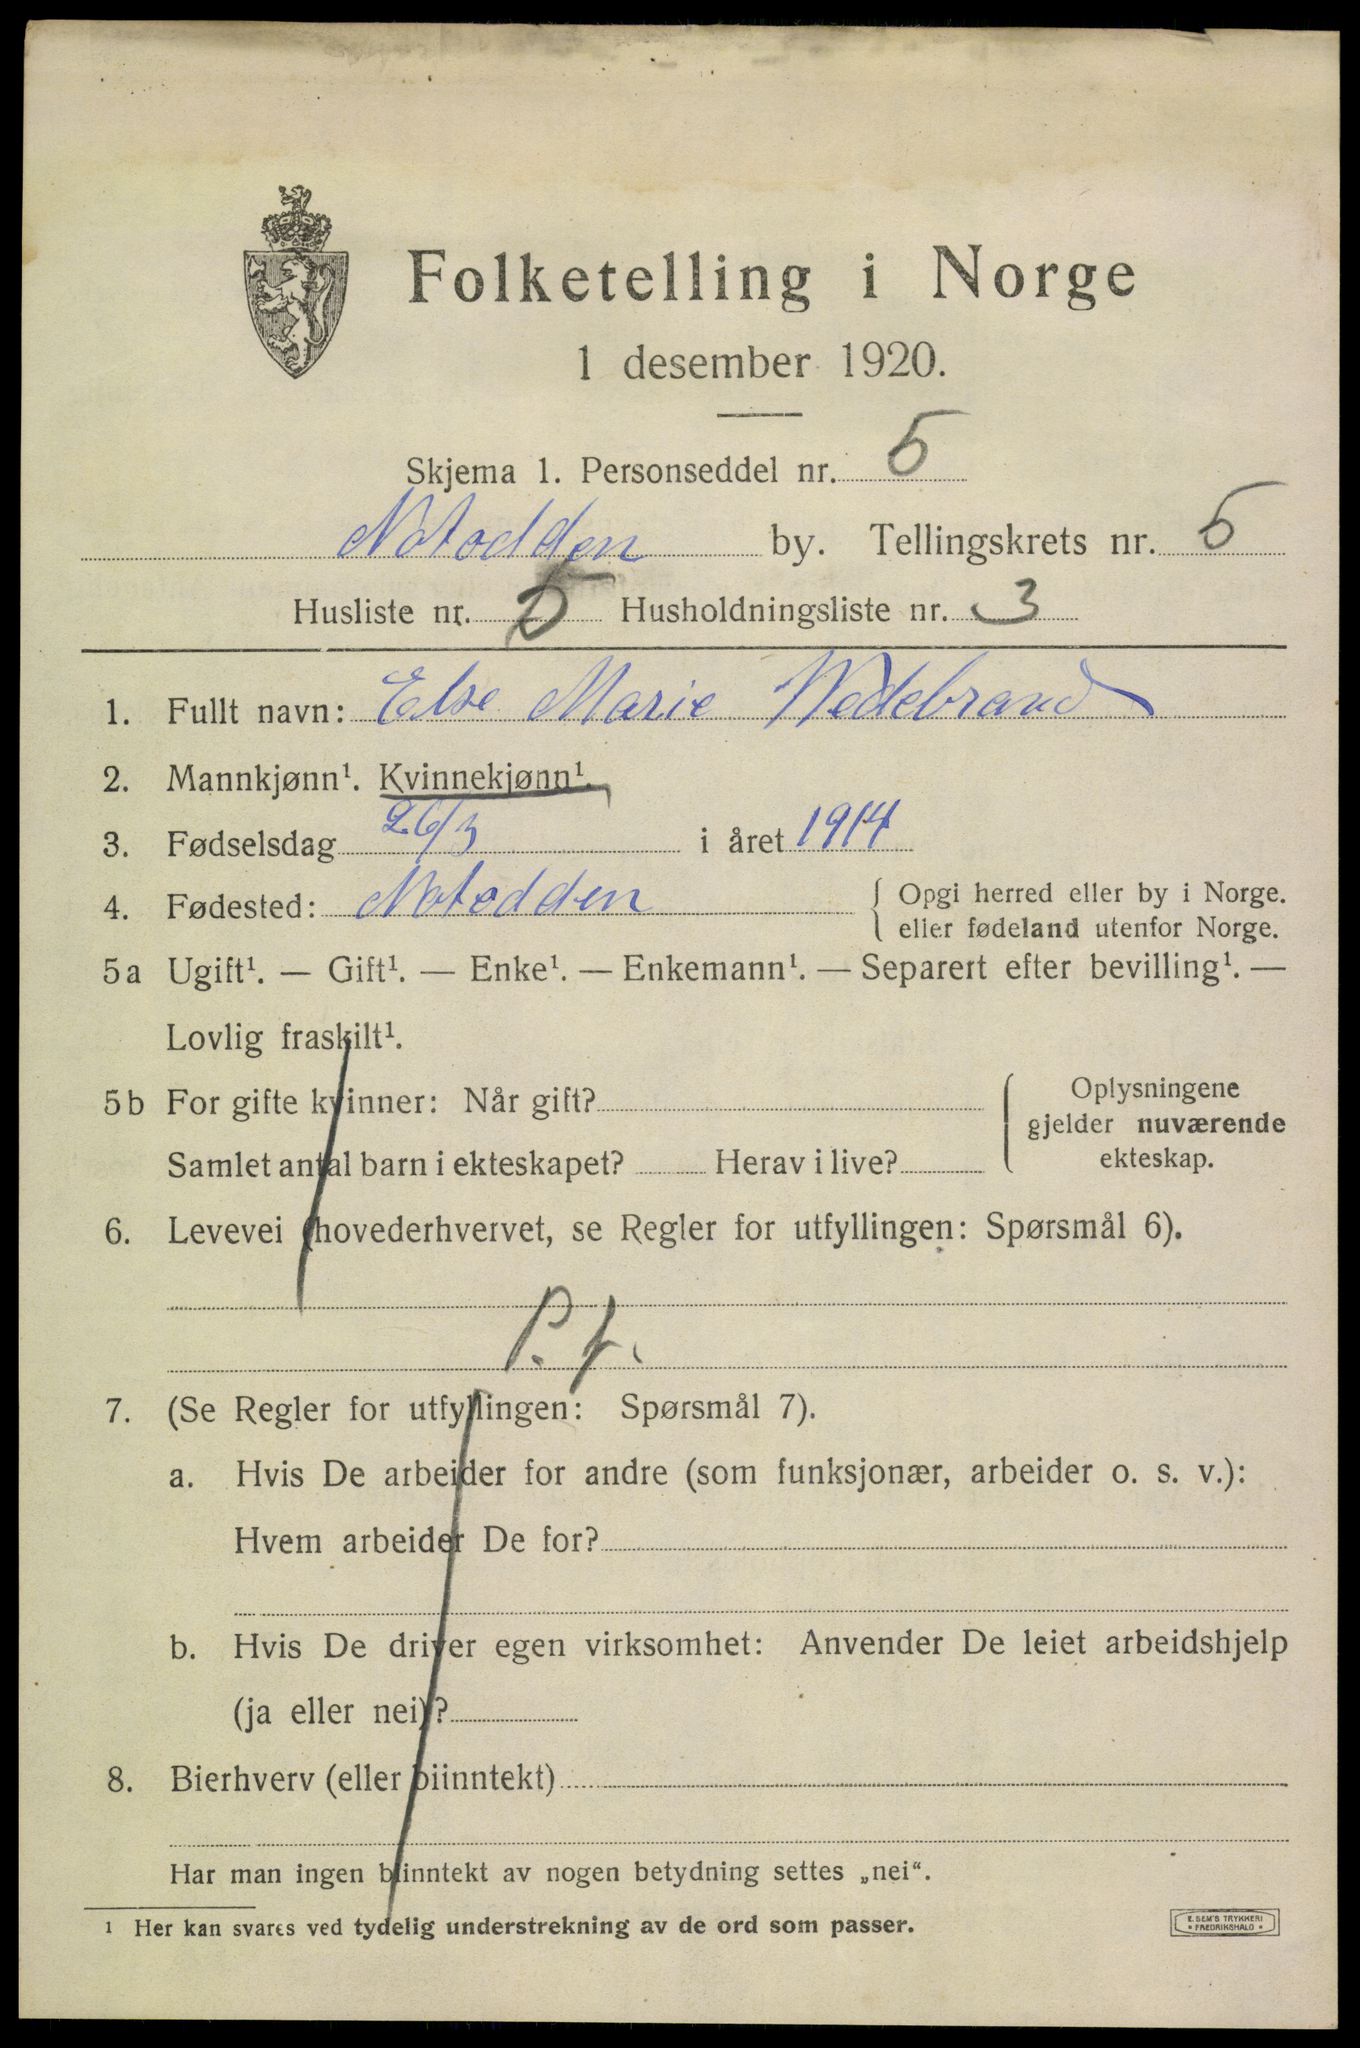 Folketelling i Norge
1 desember 1920.
Skjema 1. Personseddel nr. 5
Notodden by. Tellingskrets nr. 5
Husliste nr. 5 Husholdningsliste nr. 3
1. Fullt navn: Else Marie Wedebrand
2. Mannkjønn¹. Kvinnekjønn¹.
3. Fødselsdag 26/3 i året 1914
4. Fødested: Notodden { Opgi herred eller by i Norge.
eller fødeland utenfor Norge.
5a Ugift¹. — Gift¹. — Enke¹. — Enkemann¹. — Separert efter bevilling¹. —
Lovlig fraskilt¹.
5b For gifte kvinner: Når gift? { Oplysningene
gjelder nuværende
Samlet antal barn i ekteskapet? Herav i live? ekteskap.
6. Levevei (hovederhvervet, se Regler for utfyllingen: Spørsmål 6).
P. f.
7. (Se Regler for utfyllingen: Spørsmål 7).
a. Hvis De arbeider for andre (som funksjonær, arbeider o. s. v.):
Hvem arbeider De for?
b. Hvis De driver egen virksomhet: Anvender De leiet arbeidshjelp
(ja eller nei)?
8. Bierhverv (eller biinntekt)
Har man ingen biinntekt av nogen betydning settes „nei“.
¹ Her kan svares ved tydelig understrekning av de ord som passer.
E. SEM'S TRYKKERI
• FREDRIKSHALD •